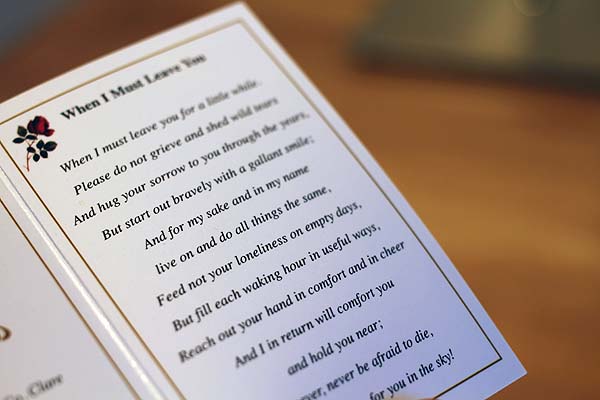 When I Must Leave You
When I must leave you for a little while.
Please do not grieve and shed wild tears
And hug your sorrow to you through the years,
But start out bravely with a gallant smile;
And for my sake and in my name
live on and do all things the same,
Feed not your loneliness on empty days,
But fill each waking hour in useful ways,
Reach out your hand in comfort and in cheer
And I in return will comfort you
and hold you near;
never be afraid to die,
for you in the sky!
Co. Clare